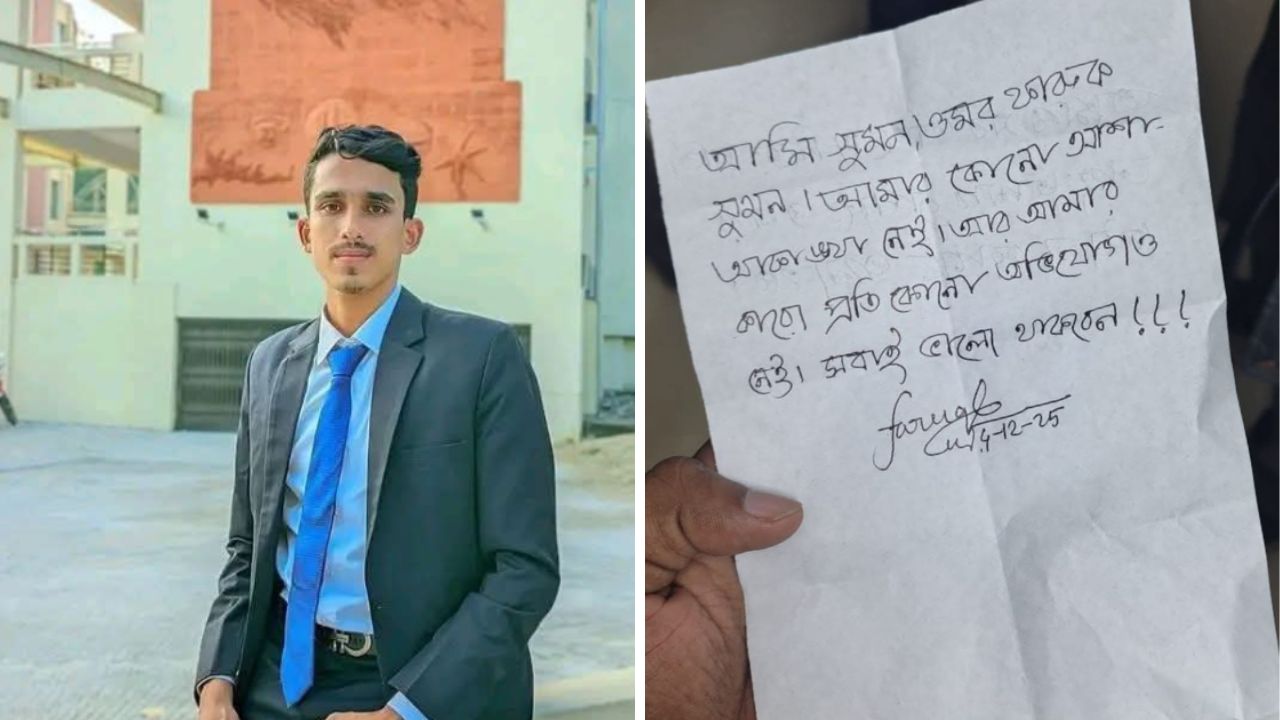 আমি সুমন, ওমর ফারুক
সুমন। আমার কোনো আশা-
আকাঙ্খা নেই। আর আমার
কারো প্রতি কোনো অভিযোগও
নেই। সবাই ভালো থাকবেন!!!
faruqe
14-12-25